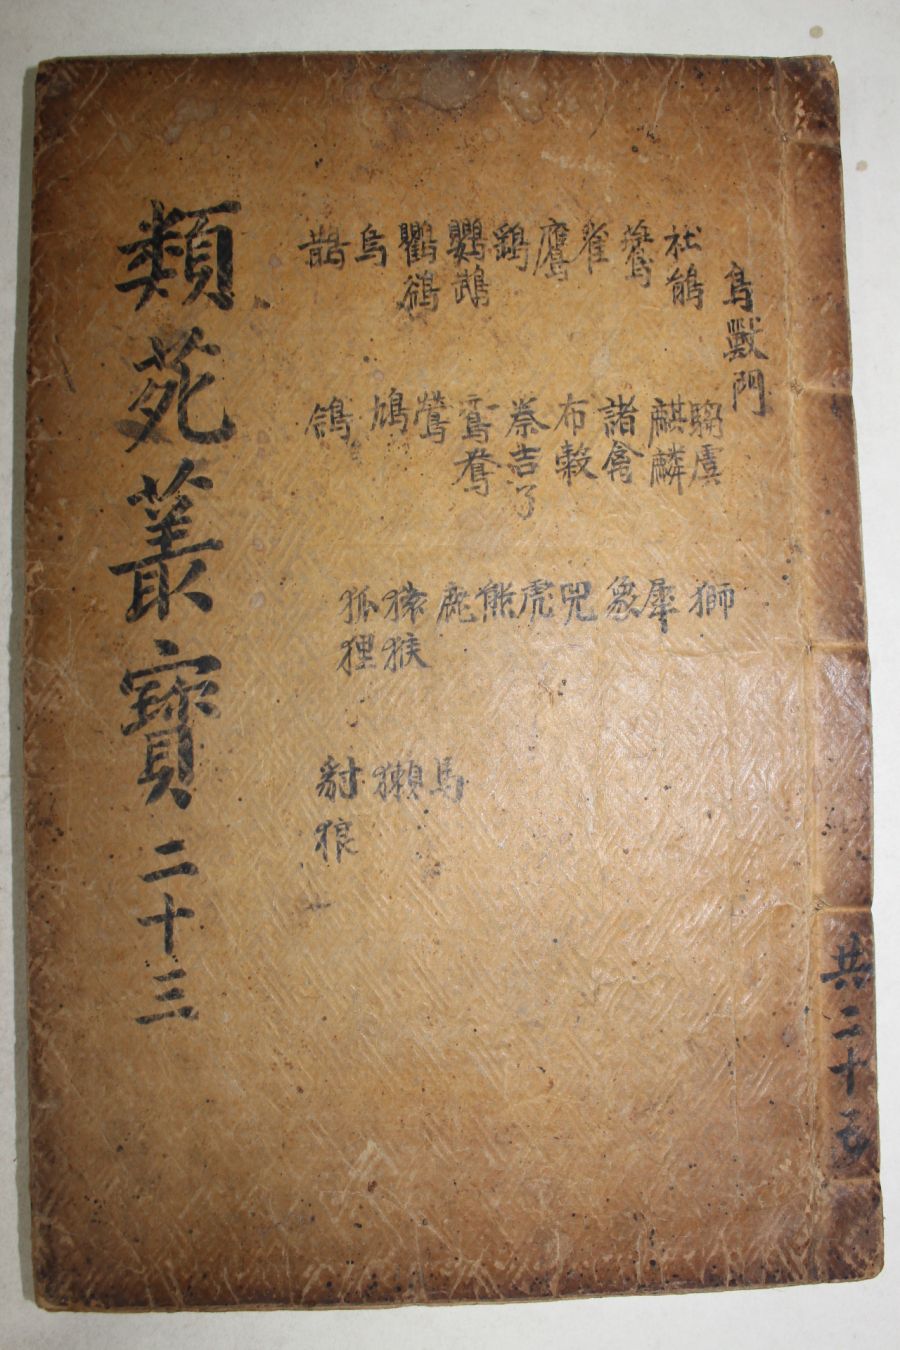 鳥獸門
杜鵑
鷰
雀
鷹
鷂
鸚鵡
鸜鵒
烏
鵲
騶虞
麒麟
諸禽
布穀
秦吉了
鴛鴦
鶯
鳩
鴿
獅
犀
象
兕
虎
熊
鹿
猿猴
狐狸
馬
獺
豺狼
類苑叢寶 二十三
共二十五